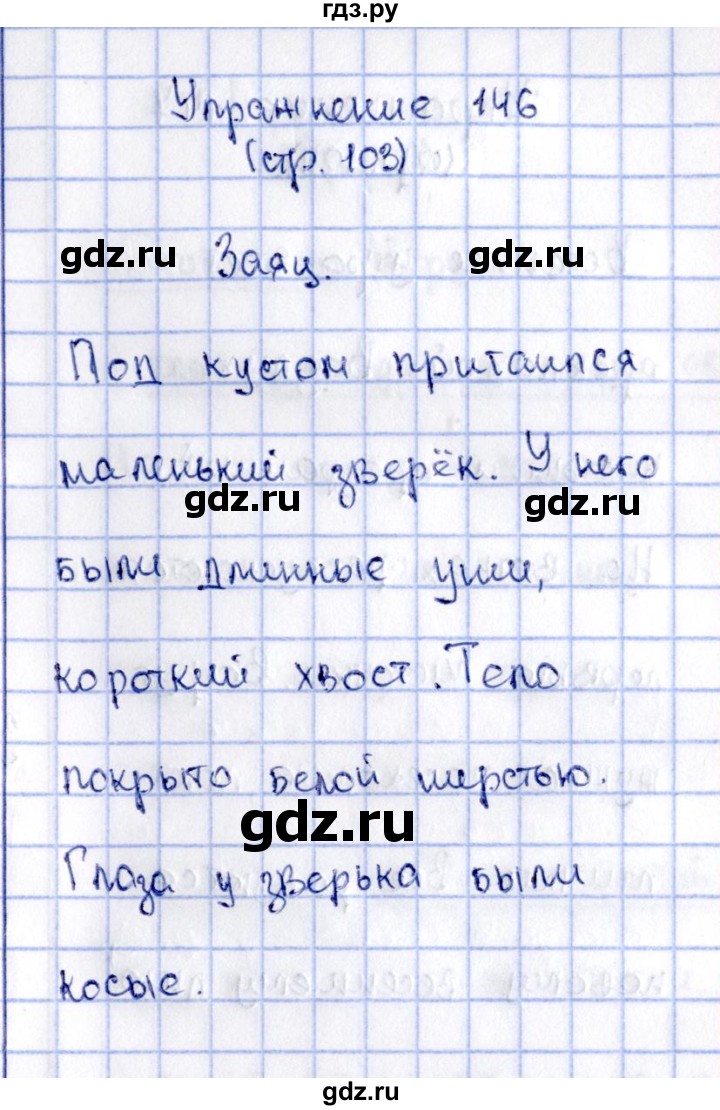 гдз.ру
Упражнение 146
(стр. 103)
gdz.ru Заяц. gdz.ru
Под кустом притаился
маленький зверёк. У него
gdz.ru gdz.ru
были длинные уши,
короткий хвост. Тело
покрыто белой шерстью.
gdz.ru
Глаза у зверька были
косые.
gdz.ru